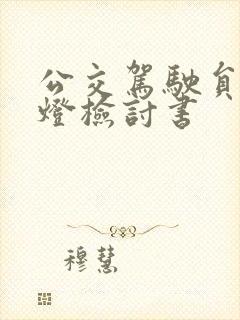 公交駕駛員
燈檢討書
穆慧